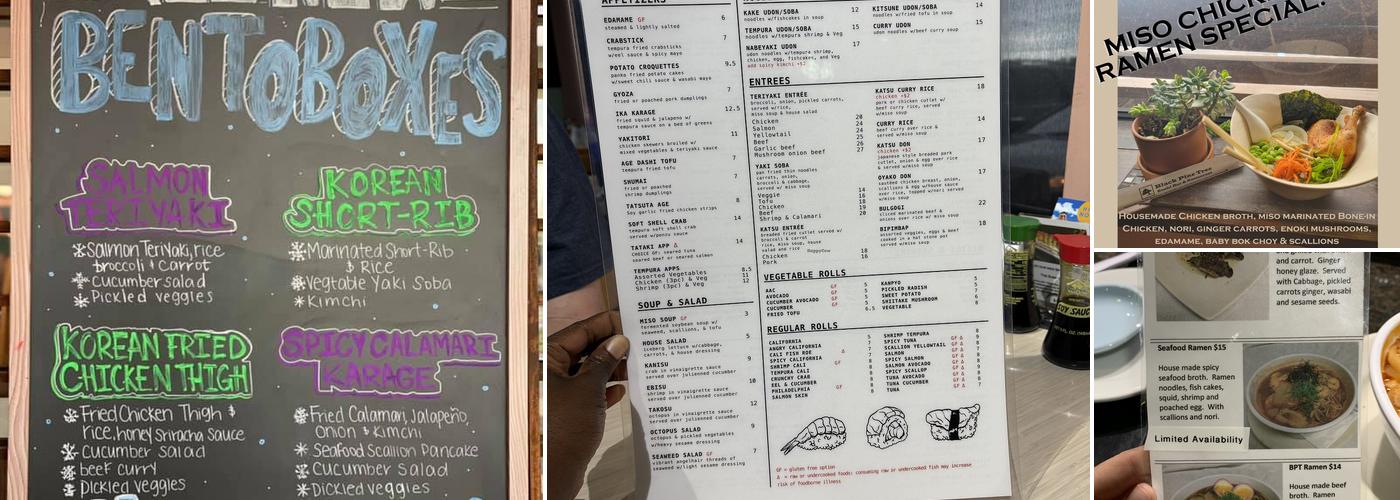 BENTO BOXES
SALMON
TERIYAKI
Salmon Teriyaki, rice
broccoli & Carrot
Cucumber salad
Pickled veggies
KOREAN
SHORT-RIB
Marinated Short-Rib
& Rice
Vegtable Yaki Soba
Kimchi
KOREAN FRIED
CHICKEN THIGH
Fried Chicken Thigh &
rice, honey Sriracha Sauce
Cucumber Salad
beef curry
Pickled veggies
SPICY CALAMARI
KARAGE
Fried Calamari, Jalapeño,
Onion & Kimchi
Seafood Scallion Pancake
Cucumber Salad
Pickled veggies
APPETIZERS
EDAMAME GF 6
steamed & lightly salted
CRABSTICK 7
tempura fried crabsticks
w/eel sauce & spicy mayo
POTATO CROQUETTES 9.5
panko fried potato cakes
w/sweet chili sauce & wasabi mayo
GYOZA 7
fried or poached pork dumplings
IKA KARAGE 12.5
fried squid & jalapeno w/
tempura sauce on a bed of greens
YAKITORI 11
chicken skewers broiled w/
mixed vegetables & teriyaki sauce
AGE DASHI TOFU 7
tempura fried tofu
SHUMAI 7
fried or poached
shrimp dumplings
TATSUTA AGE 8
Soy garlic fried chicken strips
SOFT SHELL CRAB 14
tempura fried soft shell crab
served w/ponzu sauce
TATAKI APP Δ 14
CHOICE OF: seared tuna
seared beef or seared salmon
TEMPURA APPS
Assorted Vegetables 8.5
Chicken (3pc) & Veg 11
Shrimp (3pc) & Veg 12
SOUP & SALAD
MISO SOUP GF 3
fermented soybean soup w/
seaweed, scallions, & tofu
HOUSE SALAD 5
iceberg lettuce w/cabbage,
carrots, & house dressing
KANISU 9
crab in vinaigrette sauce
served over julienned cucumber
EBISU 10
shrimp in vinaigrette sauce
served over julienned cucumber
TAKOSU 12
octopus in vinaigrette sauce
served over julienned cucumber
OCTOPUS SALAD 9
octopus & pickled vegetables
w/heavy sesame dressing
SEAWEED SALAD GF 7
vibrant angelhair threads of
seaweed w/light sesame dressing
KAKE UDON/SOBA 12
noodles w/fishcakes in soup
TEMPURA UDON/SOBA 15
noodles w/tempura shrimp & Veg
NABEYAKI UDON 17
udon noodles w/tempura shrimp,
chicken, egg, fishcakes, and Veg
add spicy kimchi +$2
KITSUNE UDON/SOBA 14
noodles w/fried tofu in soup
CURRY UDON 15
udon noodles w/beef curry soup
ENTREES
TERIYAKI ENTRÉE
broccoli, onion, pickled carrots,
served w/rice,
miso soup & house salad
Chicken 20
Salmon 24
Yellowtail 25
Beef 25
Garlic beef 26
Mushroom onion beef 27
YAKI SOBA
pan fried thin noodles
carrots, onion,
broccoli & cabbage,
served w/ miso soup
Veggie 14
Tofu 16
Chicken 19
Beef 20
Shrimp & Calamari
KATSU ENTRÉE
breaded fried cutlet served w/
broccoli & carrot
rice, miso soup, house
salad and rice
Chicken 18
Pork 18
KATSU CURRY RICE 18
chicken +$2
pork or chicken cutlet w/
beef curry over rice, served
w/miso soup
CURRY RICE 14
beef curry over rice &
served w/miso soup
KATSU DON 17
chicken +$2
japanese style breaded pork
cutlet, onion & egg over rice
served w/miso soup
OYAKO DON 17
sauteed chicken breast, onion,
scallions & egg w/house sauce
over rice, topped w/nori served
w/miso soup
BULGOGI 22
sliced marinated beef &
onions over rice w/ miso soup
BIPIMBAP 18
assorted veggies, eggs & beef
cooked in a hot stone pot
served w/miso soup
VEGETABLE ROLLS
AAC GF 5
AVOCADO GF 5
CUCUMBER AVOCADO GF 5
CUCUMBER GF 5
FRIED TOFU 6.5
KANPYO 5
PICKLED RADISH 5
SWEET POTATO 5
SHIITAKE MUSHROOM 6
VEGETABLE 7
REGULAR ROLLS
CALIFORNIA
ANGRY CALIFORNIA
CALI FISH ROE Δ
SPICY CALIFORNIA
SHRIMP CALI GF
TEMPURA CALI
CRUNCHY CRAB
EEL & CUCUMBER
PHILADELPHIA GF
SALMON SKIN
SHRIMP TEMPURA
SPICY TUNA GF Δ
SCALLION YELLOWTAIL GF Δ
SALMON GF Δ
SPICY SALMON GF Δ
SALMON AVOCADO GF Δ
SPICY SCALLOP GF Δ
TUNA AVOCADO GF Δ
TUNA CUCUMBER GF Δ
TUNA GF Δ
GF = gluten free option
Δ = raw or undercooked foods: consuming raw or undercooked fish may increase
risk of foodborne illness
SOY SAUCE
MISO CHICKEN
RAMEN SPECIAL!
Black Pine Tree
HOUSEMADE CHICKEN BROTH, MISO MARINATED BONE-IN
CHICKEN, NORI, GINGER CARROTS, ENOKI MUSHROOMS,
EDAMAME, BABY BOK CHOY & SCALLIONS
and carrot. Ginger
honey glaze. Served
with Cabbage, pickled
carrots ginger, wasabi
and sesame seeds.
Seafood Ramen $15
House made spicy
seafood broth. Ramen
noodles, fish cakes,
squid, shrimp and
poached egg. With
scallions and nori.
Limited Availability
BPT Ramen $14
House made beef
broth. Ramen